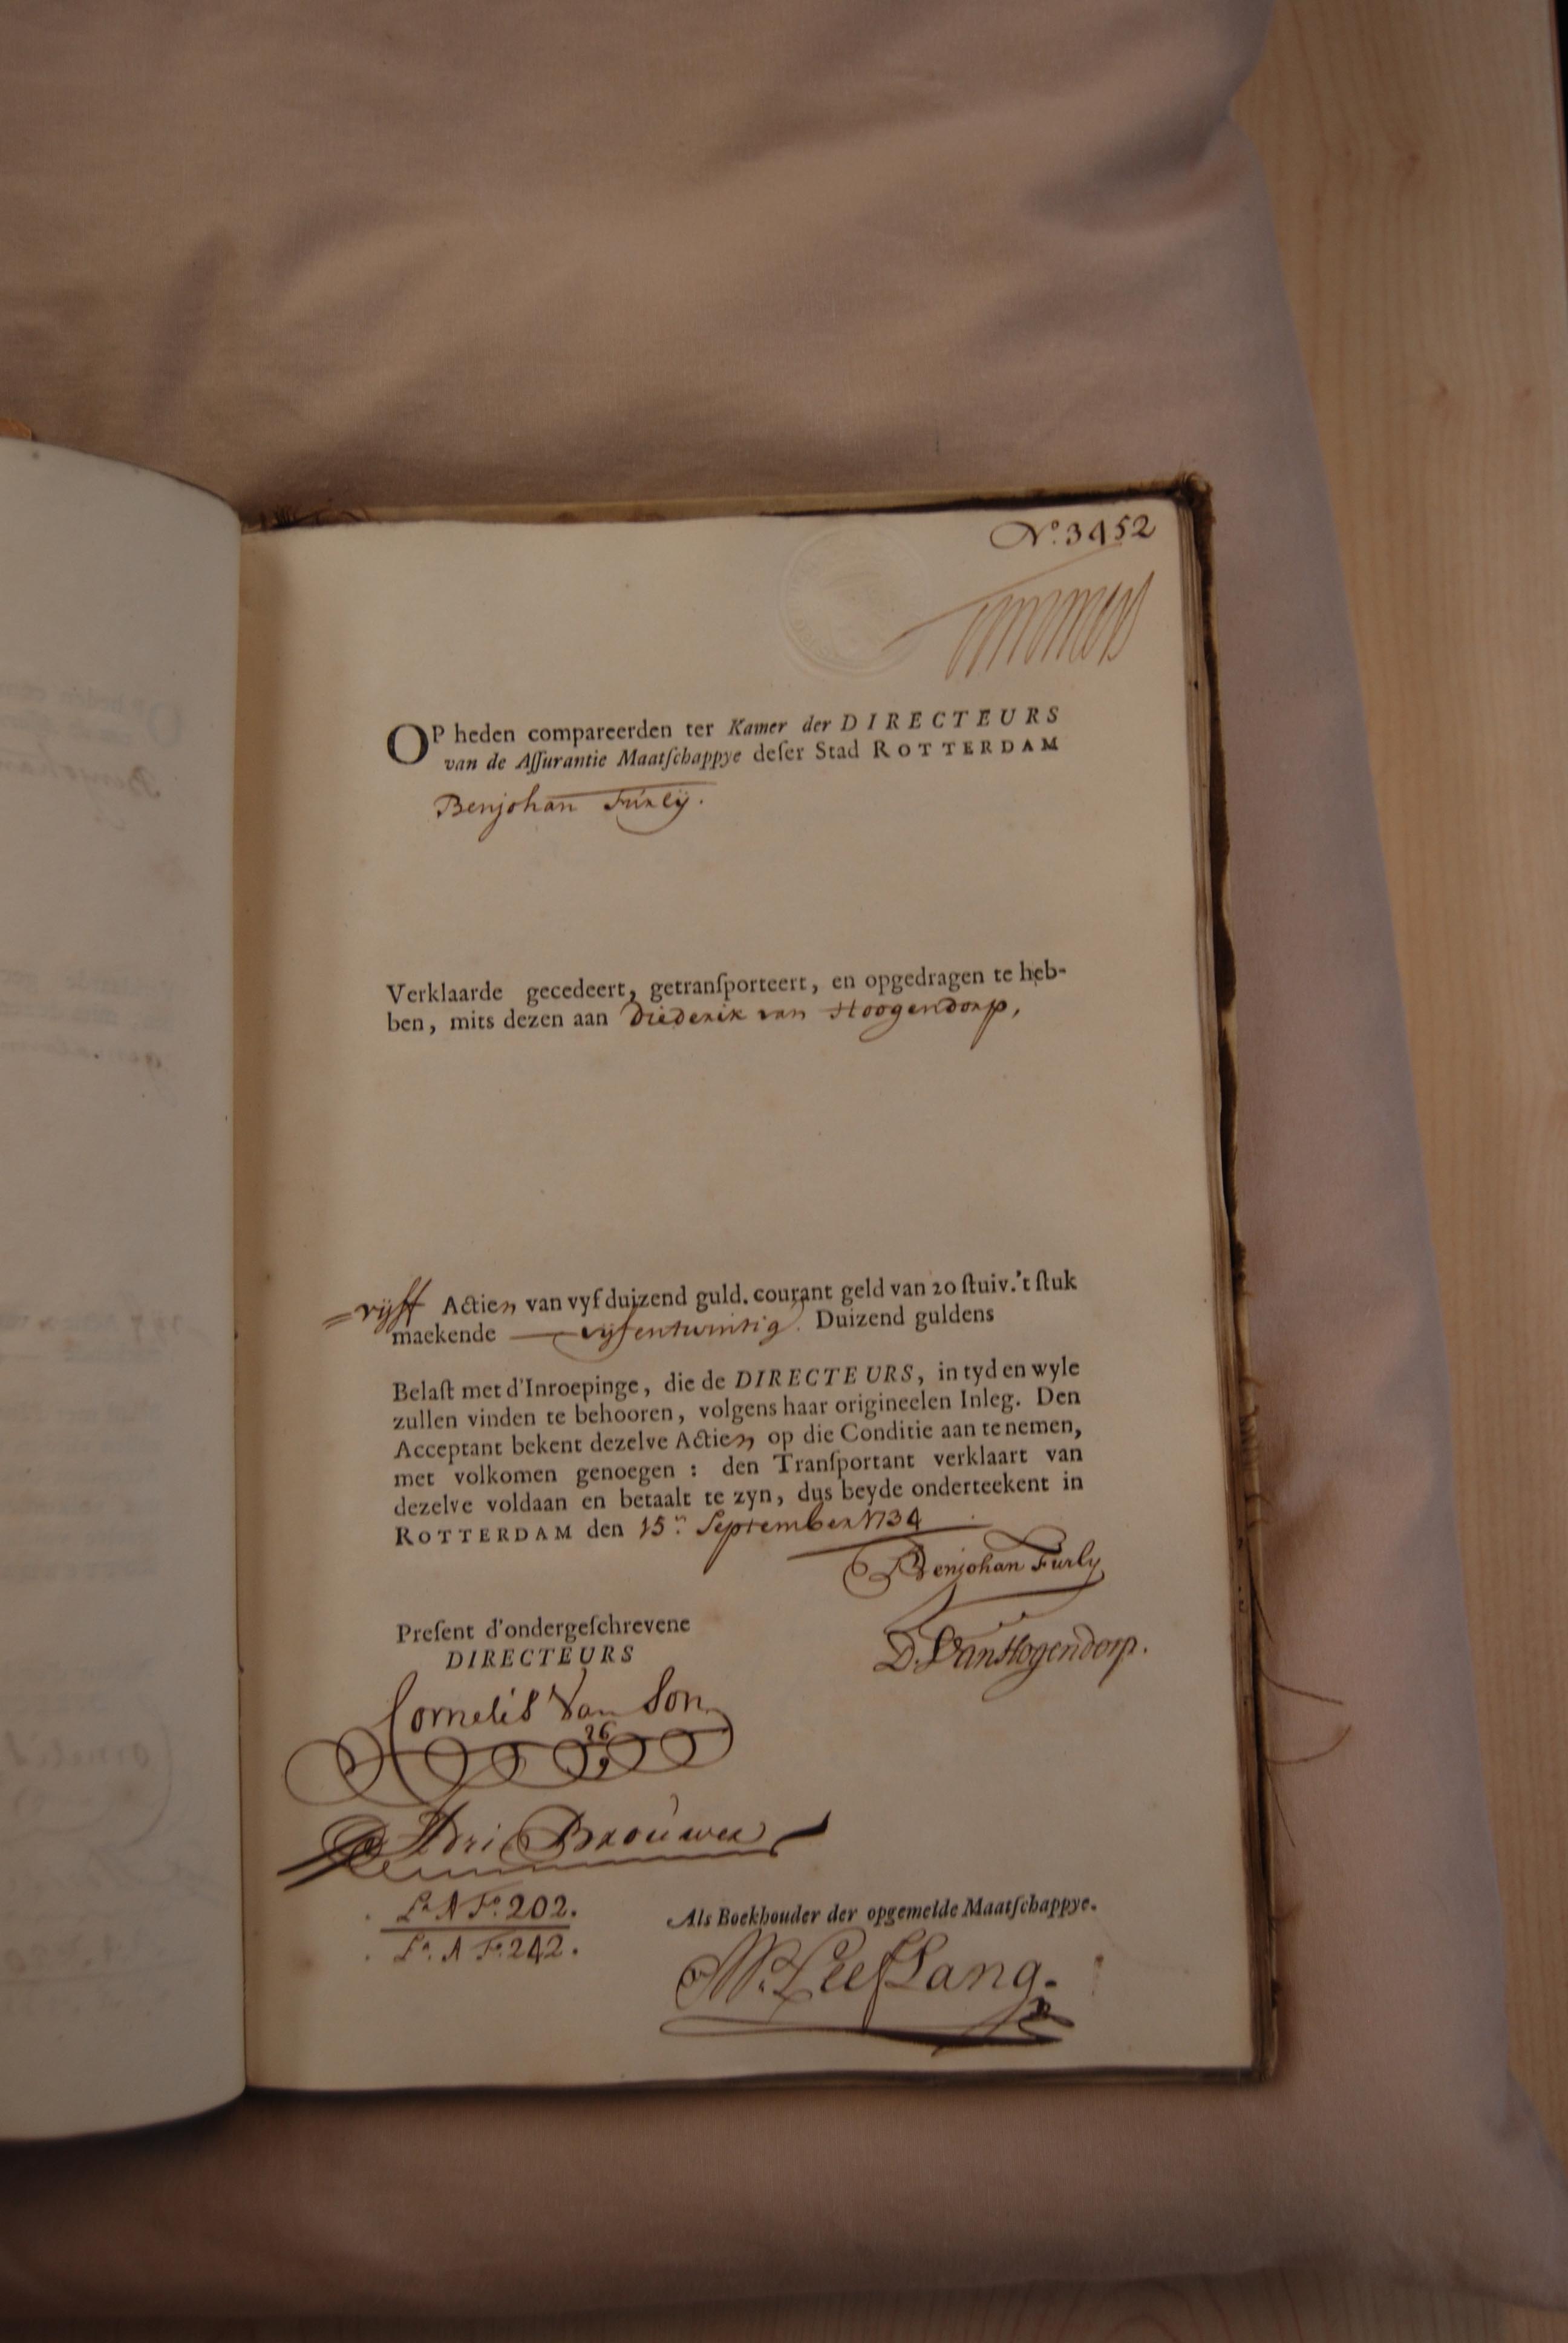 No. 3452
OP heden compareerden ter Kamer der DIRECTEURS
van de Aſſurantie Maatſchappye deſer Stad ROTTERDAM
Benjohan Furlÿ.
Verklaarde gecedeert, getranſporteert, en opgedragen te heb-
ben, mits dezen aan Diederik van Hoogendorp,
vijff Actien van vyf duizend guld. courant geld van 20 ſtuiv. 't ſtuk
maekende vijfentwintig. Duizend guldens
Belaſt met d'Inroepinge, die de DIRECTEURS, in tyd en wyle
zullen vinden te behooren, volgens haar origineelen Inleg. Den
Acceptant bekent dezelve Actien op die Conditie aan te nemen,
met volkomen genoegen : den Tranſportant verklaart van
dezelve voldaan en betaalt te zyn, dus beyde onderteekent in
ROTTERDAM den 15en September 1734
Benjohan Furly
D. Van Hogendorp.
Preſent d'ondergeſchrevene
DIRECTEURS
Cornelis Van Son
Adri Brouwer
La A Fo. 202.
La. A Fo. 242.
Als Boekhouder der opgemelde Maatſchappye.